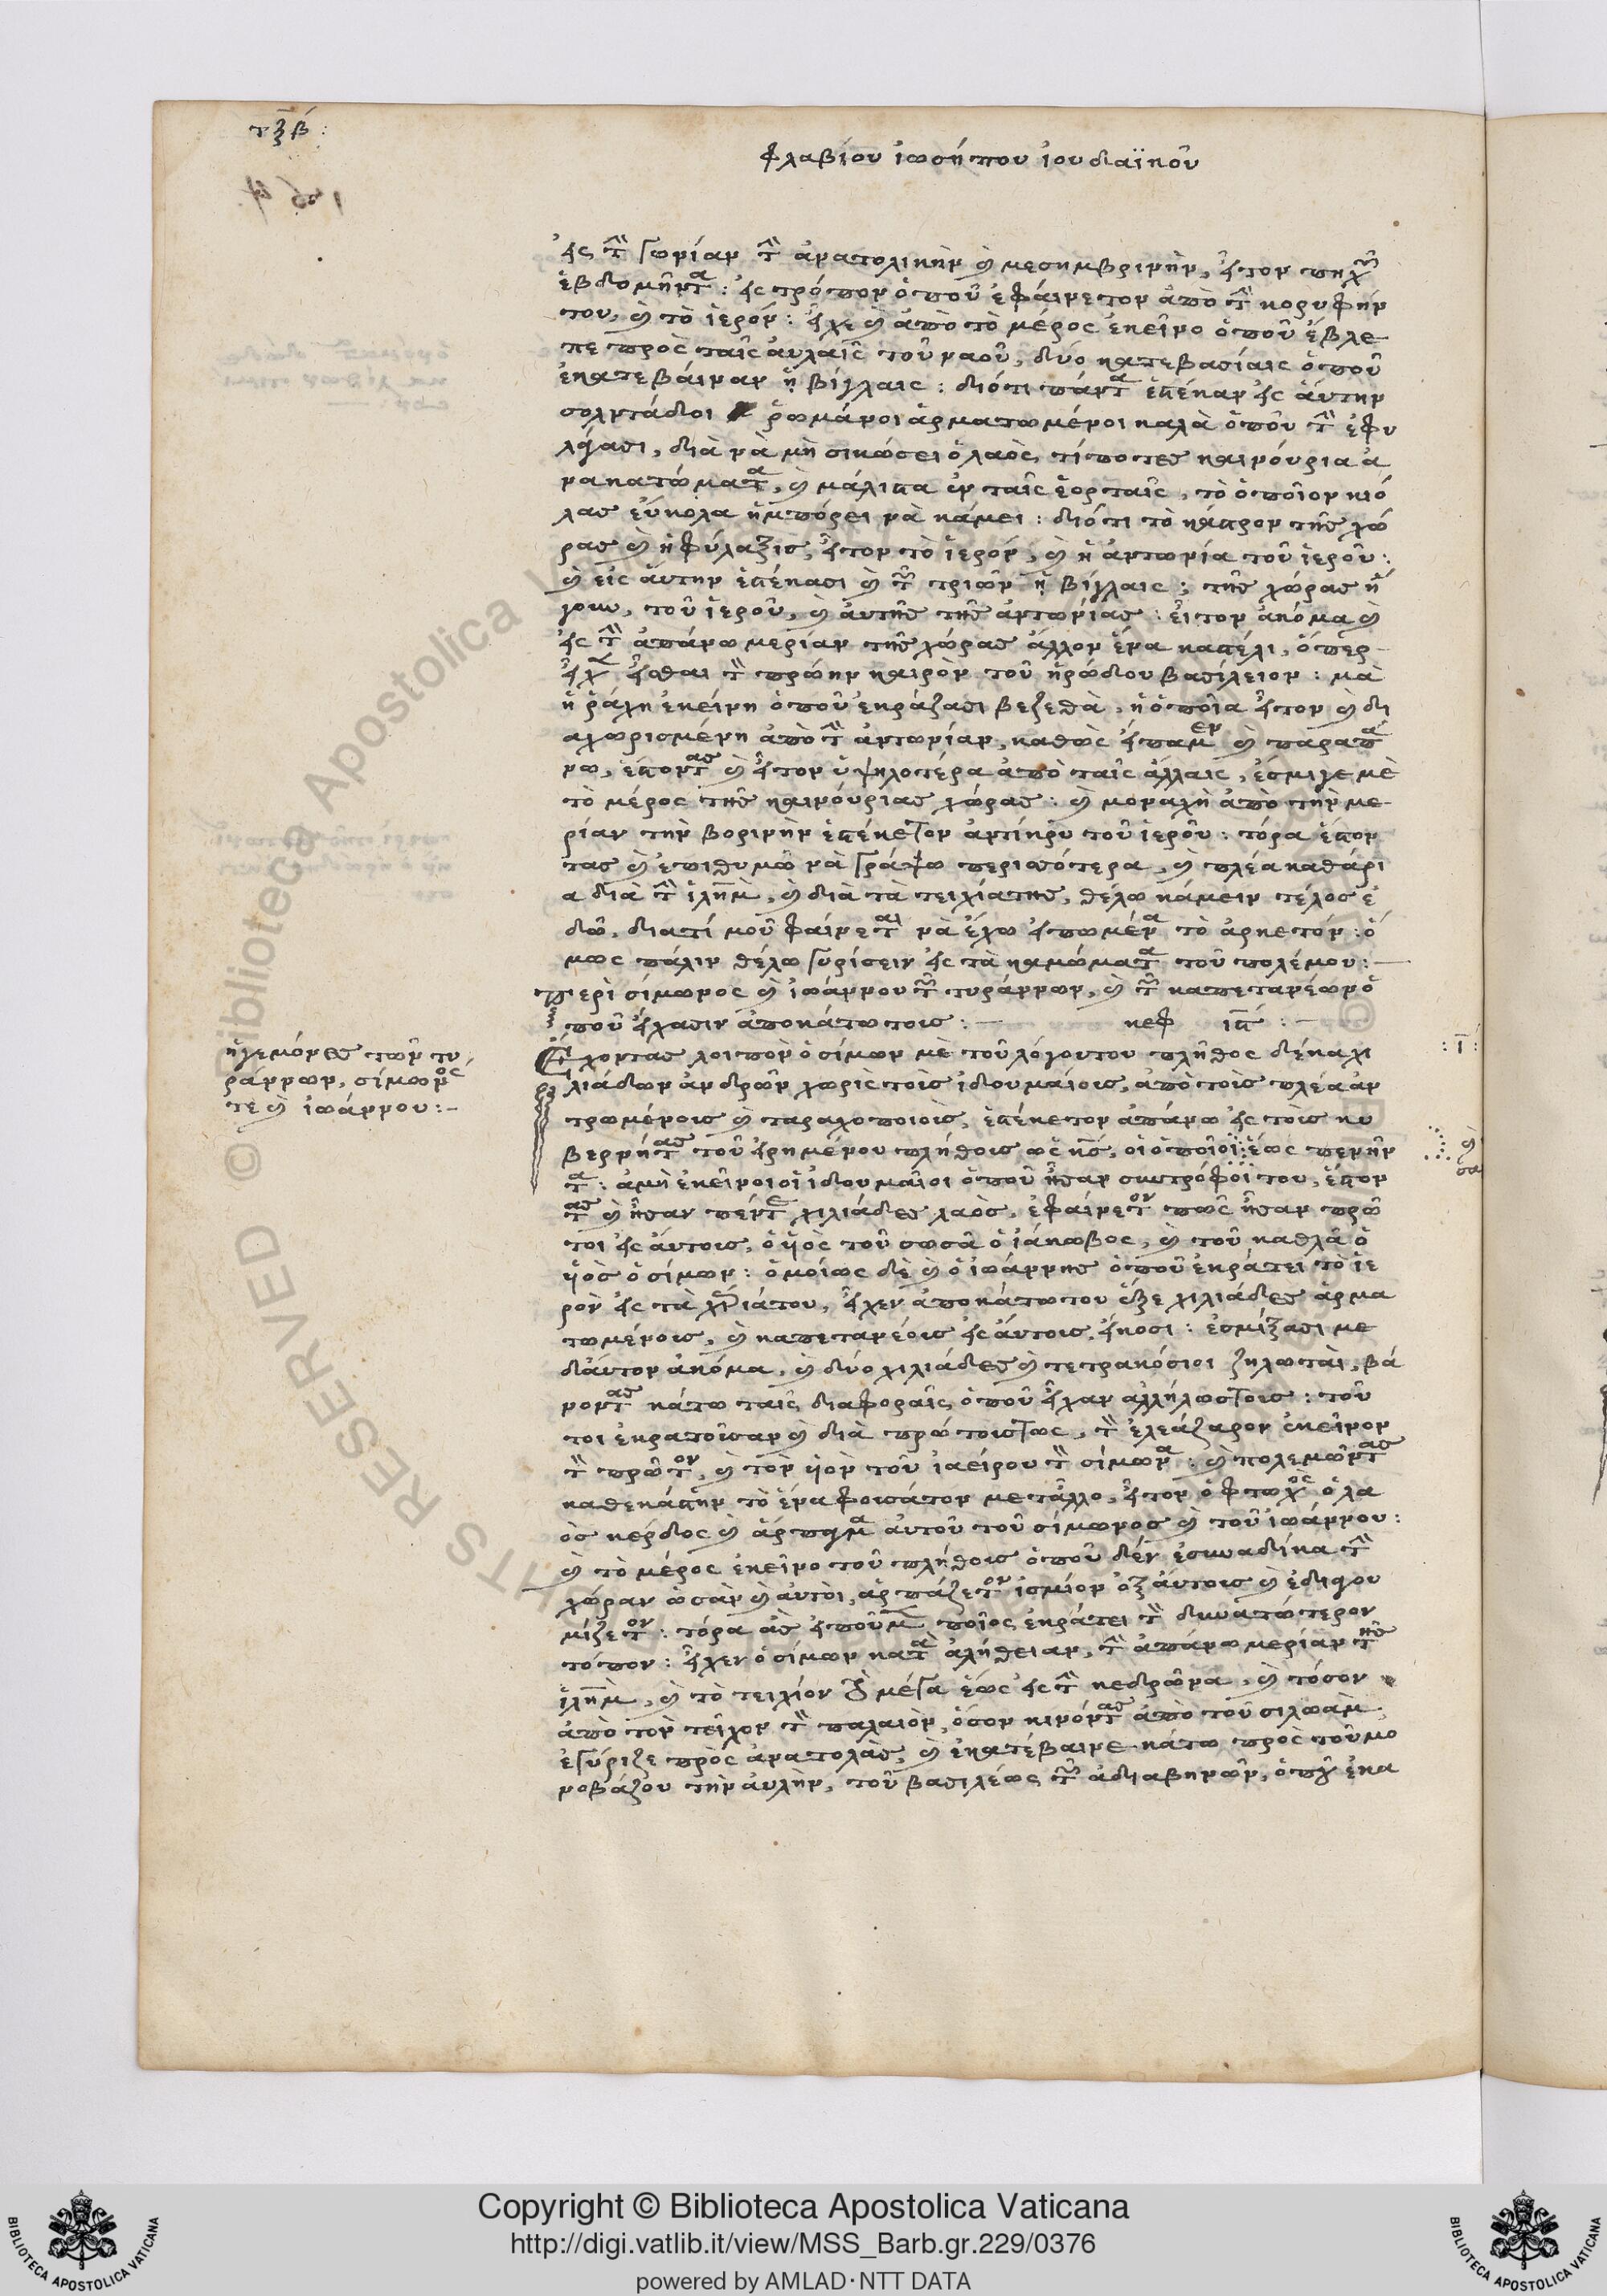 τξβ:
φλαβίου ἰωσήπου ἰουδαϊκοῦ
εἰς τὴν γωνίαν τὴν ἀνατολικὴν καὶ μεσημβρινὴν, ἦτον πηχῶν
ἑβδομῆντα: εἰς τρόπον ὁποῦ ἐφαίνετον ἀπὸ τὴν κορυφήν
του, καὶ τὸ ἱερόν: εἶχε καὶ ἀπὸ τὸ μέρος ἐκεῖνο ὁποῦ ἔβλε
πε πρὸς ταῖς αὐλαῖς τοῦ ναοῦ, δύο κατεβασίαις ὁποῦ
ἐκατεβαίναν ἡ βίγλαις: διότι πάντα ἐστέκαν εἰς αὐτὴν
σολντάδοι ῥωμάνοι ἁρματωμένοι καλὰ ὁποῦ τὴν ἐφυ
λάγασι, διὰ νὰ μὴ σικώσει ὁ λαὸς τίποτες καινούρια ἀ
νακατώματα, καὶ μάλιστα ἐν ταῖς ἑορταῖς, τὸ ὁποῖον κιό
λας εὔκολα ἠμπόρει νὰ κάμει: διότι τὸ κάστρον τῆς χώ
ρας καὶ ἡ φύλαξις, ἦτον τὸ ἱερόν, καὶ ἡ ἀντωνία τοῦ ἱεροῦ:
καὶ εἰς αὐτὴν ἐστέκασι καὶ τῶν τριῶν ἡ βίγλαις: τῆς χώρας ἤ
γουν, τοῦ ἱεροῦ, καὶ αὐτῆς τῆς ἀντωνίας: εἶτον ἀκόμα καὶ
εἰς τὴν ἀπάνω μερίαν τῆς χώρας ἄλλον ἕνα καστέλι, ὅπερ
τὸν πρώην καιρὸν τοῦ ἡρώδου βασίλειον: μὰ
ἡ ῥάχη ἐκείνη ὁποῦ ἐκράζασι βεζεθὰ, ἡ ὁποῖα ἦτον καὶ δι
αχωρισμένη ἀπὸ τὴν ἀντωνίαν, καθὼς εἴπαμεν καὶ παραπά
νω, ἔστοντας καὶ ἦτον ὑψηλοτέρα ἀπὸ ταῖς ἄλλαις, ἔσμιγε μὲ
τὸ μέρος τῆς καινούριας χώρας: καὶ μοναχὴ ἀπὸ τὴν με
ρίαν τὴν βορινὴν ἐστέκετον ἀντίκρυ τοῦ ἱεροῦ: τόρα ἔστον
τας καὶ ἐπιθυμῶ νὰ γράψω περισσότερα, καὶ πλέα καθάρι
α διὰ τὴν ἱλημὰ, καὶ διὰ τὰ τειχία της, θέλω κάμειν τέλος ἐ
δῶ, διατί μοῦ φαίνεται νὰ ἔχω εἰπωμένα τὸ ἀρκετόν: ὅ
μως πάλιν θέλω γυρίσειν εἰς τὰ καμώματα τοῦ πολέμου:
Περὶ σίμωνος καὶ ἰωάννου τῶν τυράννων, καὶ τῶν καπετανέων ὁ
ποῦ εἴχασιν ἀποκάτω τοις: κεφ ιϛ:
ἡγεμόνες τῶν τυ
ράννων, σίμωνος
τε καὶ ἰωάννου:
:ι:
Ἔχοντας λοιπὸν ὁ σίμων μὲ τοῦ λόγου του πλῆθος δέκα χι
λιάδων ἀνδρῶν χωρὶς τοῖς ἰδουμαίοις, ἀπὸ τοῖς πλέα ἀν
τρωμένοις καὶ ταραχοποιοῖς, ἐστέκετον ἀπάνω εἰς τοῖς κυ
βερνήτας τοῦ εἰρημένου πλήθοις ὡς, οἱ ὁποῖοι ἕως πενῆν
τα: ἀμὴ ἐκεῖνοι οἱ ἰδουμαῖοι ὁποῦ ἦσαν συντρόφοι του, ἔστον
τας καὶ ἦσαν πέντε χιλιάδες λαὸς, ἐφαίνετον πῶς ἦσαν πρῶ
τοι εἰς αὐτοις, ὁ ὑιὸς τοῦ σωσᾶ ὁ ἰάκωβος, καὶ τοῦ καθλᾶ ὁ
ὑιὸς ὁ σίμων: ὁμοίως δὲ καὶ ὁ ἰωάννης ὁποῦ ἐκράτει τὸ ἱε
ρὸν εἰς τὰ χέρια του, εἶχεν ἀποκάτω του ἕξε χιλιάδες ἁρμα
τωμένοις, καὶ καπετανέοις εἰς αὐτοις εἴκοσι: ἐσμίξασι με
δαύτον ἀκόμα, καὶ δύο χιλιάδες καὶ τετρακόσιοι ζηλωταὶ, βά
νοντας κάτω ταῖς διαφοραῖς ὁποῦ εἶχαν ἀλλήλως τοις: τοῦ
τοι ἐκρατοῦσαν καὶ διὰ πρώτοις τως, τὸν ἐλεάζαρον ἐκεῖνον
τὸν πρῶτον, καὶ τὸν ὑιὸν τοῦ ἰαείρου τὸν σίμωνα: καὶ πολεμῶντας
καθεκάστην τὸ ἕνα φοισάτον με τἄλλο, ἦτον ὁ φτωχὸς ὁ λα
ὸς κέρδος καὶ ἅρπαγμα αὐτοῦ τοῦ σίμωνος καὶ τοῦ ἰωάννου:
καὶ τὸ μέρος ἐκεῖνο τοῦ πλήθοις ὁποῦ δὲν ἐσυναδίκα τὴν
χώραν ὡσὰν καὶ αὐτοὶ, ἁρπάζετον ἴσμιον ὀξ αὐτοις καὶ ἐδιαγου
μίζετον: τόρα ἂς εἰποῦμεν ποῖος ἐκράτει τὸν δυνατώτερον
τόπον: εἶχεν ὁ σίμων κατὰ ἀλήθειαν, τὴν ἀπάνω μερίαν τῆς
ἱλημὰ, καὶ τὸ τειχίον τὸ μέγα ἕως εἰς τὴν κεδρῶνα, καὶ τόσον
ἀπὸ τὸν τεῖχον τὸν παλαιὸν, ὅσον κινόντας ἀπὸ τοῦ σιλωὰμ
ἐγύριζε πρὸς ἀνατολὰς, καὶ ἐκατέβαινε κάτω πρὸς τοῦ μο
νοβάζου τὴν αὐλὴν, τοῦ βασιλέως τῶν ἀδιαβηνῶν, ὁποῦ ἐκα
Copyright © Biblioteca Apostolica Vaticana
http://digi.vatlib.it/view/MSS_Barb.gr.229/0376
powered by AMLAD·NTT DATA